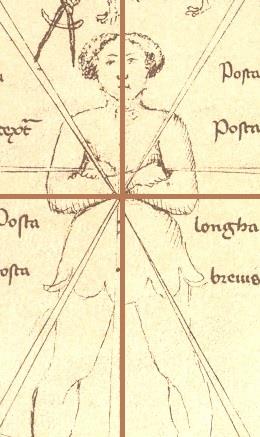 Posta
Posta
Posta longha
osta brevis